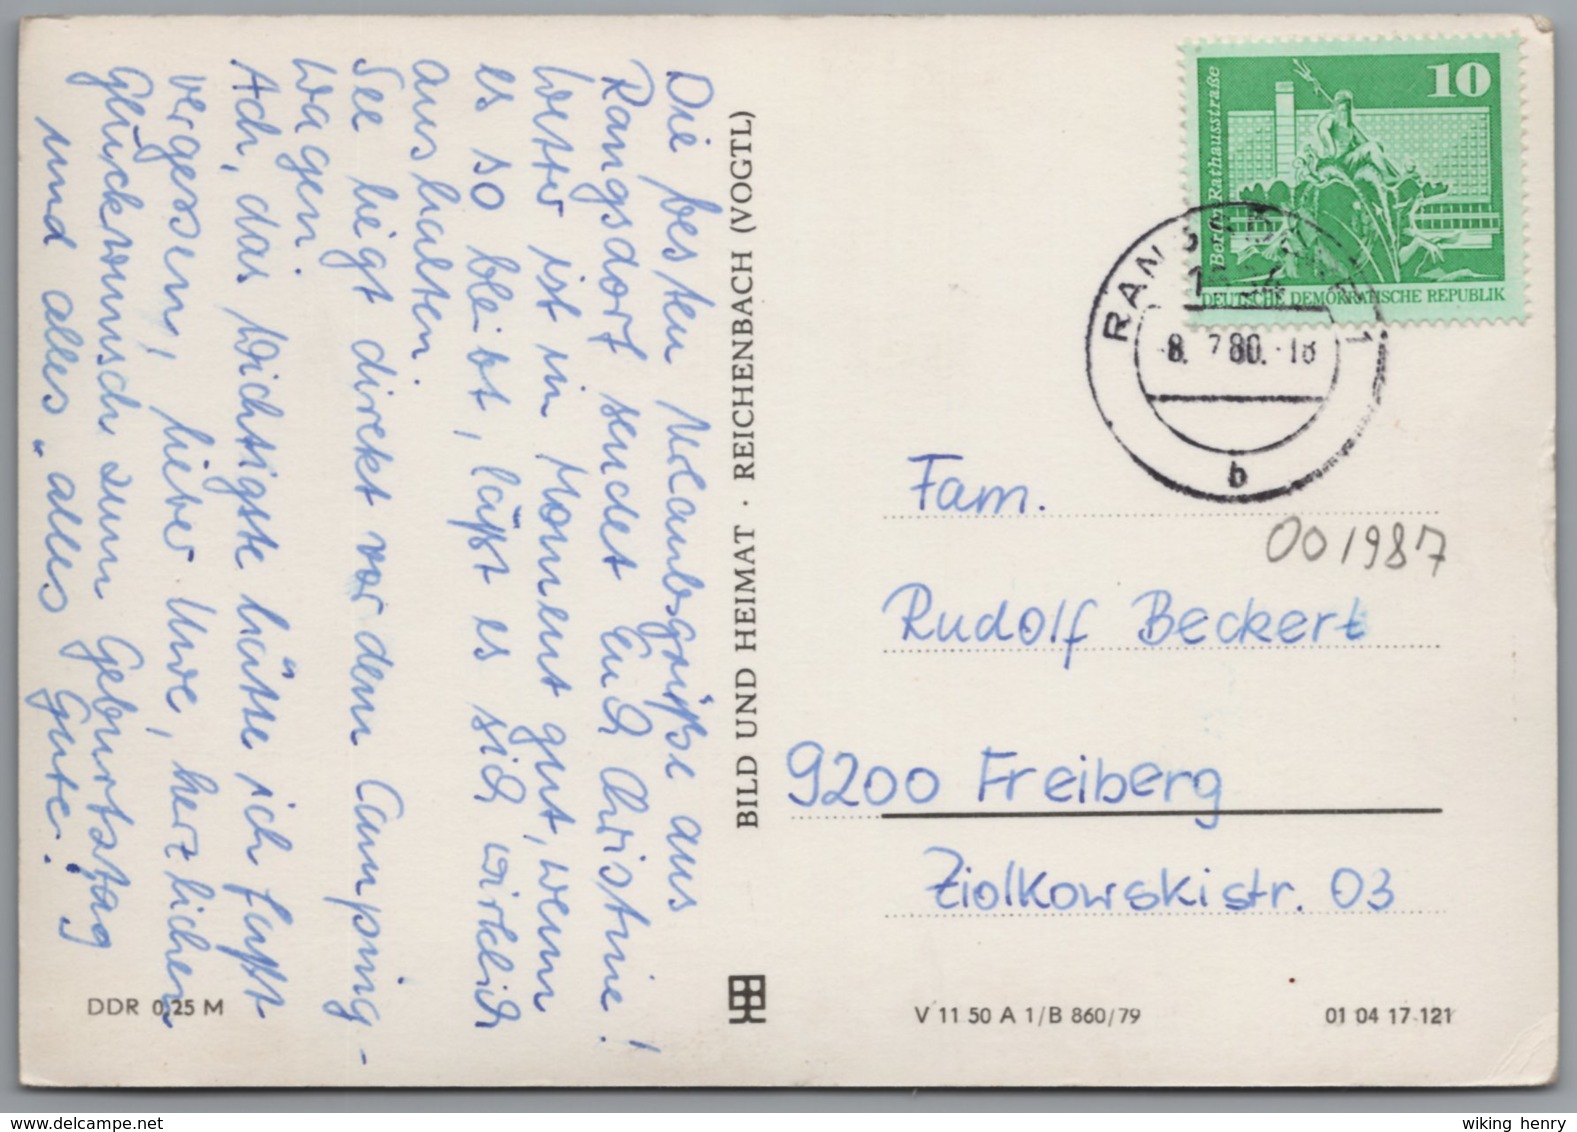 Die besten Urlaubsgrüße aus
Rangsdorf sendet Euch Christine!
Wetter ist im Moment gut, wenn
es so bleibt, läßt es sich wirklich
aushalten.
See liegt direkt vor dem Camping-
wagen.
Ach, das Wichtigste hätte ich faßt
vergessen, lieber Uwe, herzlichen
Glückwunsch zum Geburtstag
und alles, alles Gute!
BILD UND HEIMAT · REICHENBACH (VOGTL)
DDR 0,25 M
10
Berlin, Rathausstraße
DEUTSCHE DEMOKRATISCHE REPUBLIK
-8. 7 80.-18
b
001987
Fam.
Rudolf Beckert
9200 Freiberg
Ziolkowskistr. 03
V 11 50 A 1/B 860/79
01 04 17 121
wiking henry